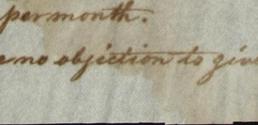 per month.
e no objection to give